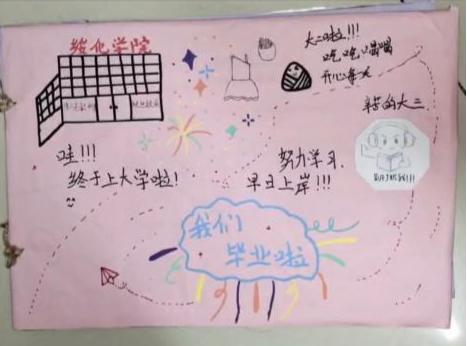 绥化学院
大二啦!!!
吃吃喝喝
开心每天
辛苦的大三
哇!!!
终于上大学啦!
努力学习.
早日上岸!!!
我们
毕业啦